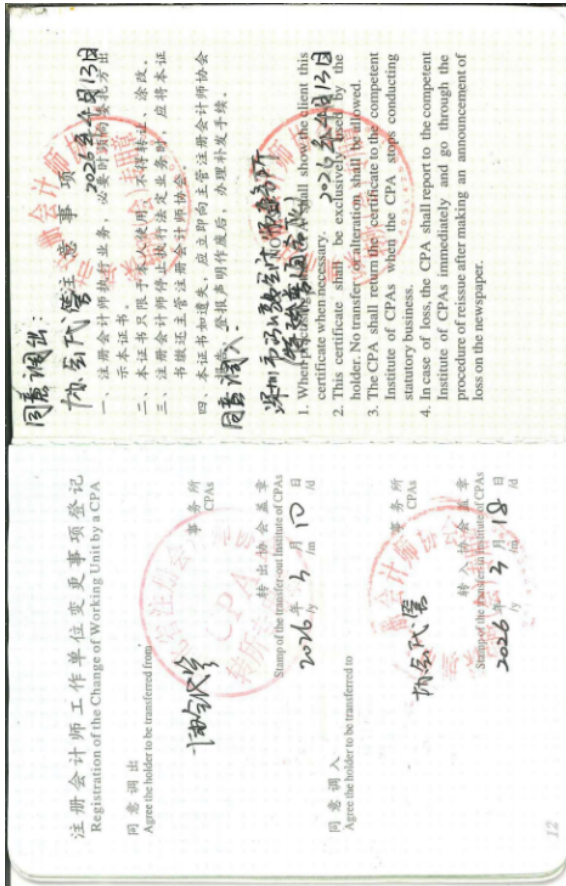 注册会计师工作单位变更事项登记
Registration of the Change of Working Unit by a CPA
同意调出
Agree the holder to be transferred from
事务所
CPAs
转出协会盖章
Stamp of the transfer-out Institute of CPAs
2026年 3月 日
/y /m /d
同意调入
Agree the holder to be transferred to
协会代管
事务所
CPAs
转入协会盖章
Stamp of the transfer-in Institute of CPAs
2026年 3月 18日
/y /m /d
12
同意调出：
协会代管
2026年4月13日
注意事项
一、注册会计师执行业务，必要时须向委托方出
示本证书。
二、本证书只限于本人使用，不得转让、涂改。
三、注册会计师停止执行法定业务时，应将本证
书缴还主管注册会计师协会。
四、本证书如遗失，应立即向主管注册会计师协会
报告，登报声明作废后，办理补发手续。
同意调入：
深圳市 会计师事务所
2026年4月13日
1. When practising, the CPA shall show the client this
certificate when necessary.
2. This certificate shall be exclusively used by the
holder. No transfer or alteration shall be allowed.
3. The CPA shall return the certificate to the competent
Institute of CPAs when the CPA stops conducting
statutory business.
4. In case of loss, the CPA shall report to the competent
Institute of CPAs immediately and go through the
procedure of reissue after making an announcement of
loss on the newspaper.